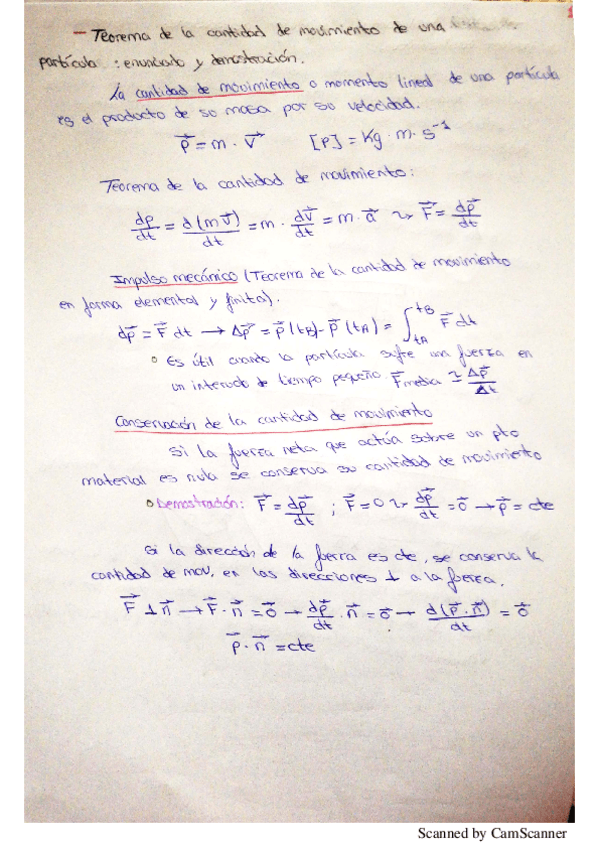 - Teorema de la cantidad de movimiento de una
partícula : enunciado y demostración.
La cantidad de movimiento o momento lineal de una partícula
es el producto de su masa por su velocidad.
p⃗ = m · v⃗ [p] = Kg · m · s⁻¹
Teorema de la cantidad de movimiento:
dp/dt = d(m v⃗)/dt = m · dv⃗/dt = m · a⃗ ⤳ F⃗ = dp⃗/dt
Impulso mecánico (Teorema de la cantidad de movimiento
en forma elemental y finita).
dp⃗ = F⃗ dt → Δp⃗ = p⃗ (tB) - p⃗ (tA) = ∫_tA^tB F⃗ dt
° Es útil cuando la partícula sufre una fuerza en
un intervalo de tiempo pequeño. F⃗media ≃ Δp⃗/Δt
Conservación de la cantidad de movimiento
Si la fuerza neta que actúa sobre un pto
material es nula se conserva su cantidad de movimiento
° Demostración: F⃗ = dp⃗/dt ; F⃗ = 0 ⤳ dp⃗/dt = 0⃗ → p⃗ = cte
Si la dirección de la fuerza es cte, se conserva la
cantidad de mov. en las direcciones ⊥ a la fuerza.
F⃗ ⊥ n⃗ → F⃗ · n⃗ = 0⃗ → dp⃗/dt · n⃗ = 0⃗ → d(p⃗ · n⃗)/dt = 0⃗
p⃗ · n⃗ = cte
Scanned by CamScanner